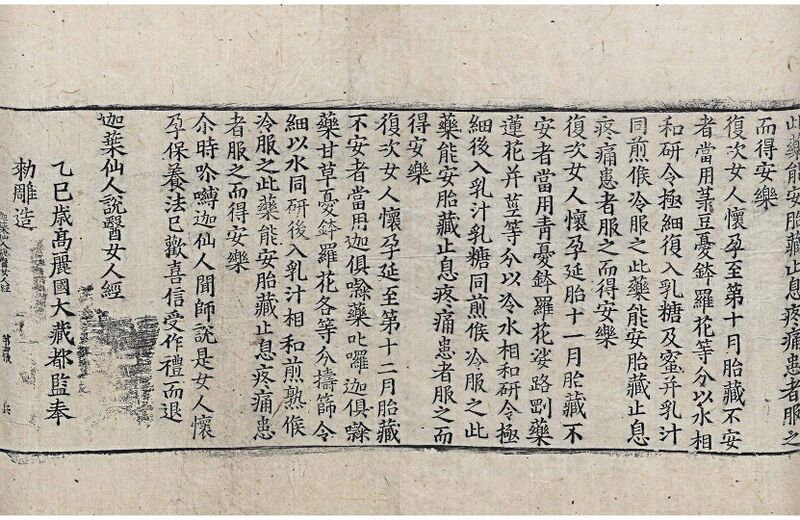 此藥能安胎藏止息疼痛患者服之
而得安樂
復次女人懷孕至第十月胎藏不安
者當用菉豆憂鉢羅花等分以水相
和研令極細復入乳糖及蜜幷乳汁
同煎候冷服之此藥能安胎藏止息
疼痛患者服之而得安樂
復次女人懷孕延胎十一月胎藏不
安者當用靑憂鉢羅花娑路㔉藥
蓮花幷莖等分以冷水相和研令極
細後入乳汁乳糖同煎候冷服之此
藥能安胎藏止息疼痛患者服之而
得安樂
復次女人懷孕延至第十二月胎藏
不安者當用迦俱㘑藥叱囉迦俱㘑
藥甘草憂鉢羅花各等分擣篩令
細以水同研後入乳汁相和煎熟候
冷服之此藥能安胎藏止息疼痛患
者服之而得安樂
尒時吟嚩迦仙人聞師說是女人懷
孕保養法已歡喜信受作禮而退
迦葉仙人說醫女人經
乙巳歲高麗國大藏都監奉
勑雕造
迦葉仙人說醫女人經 兵